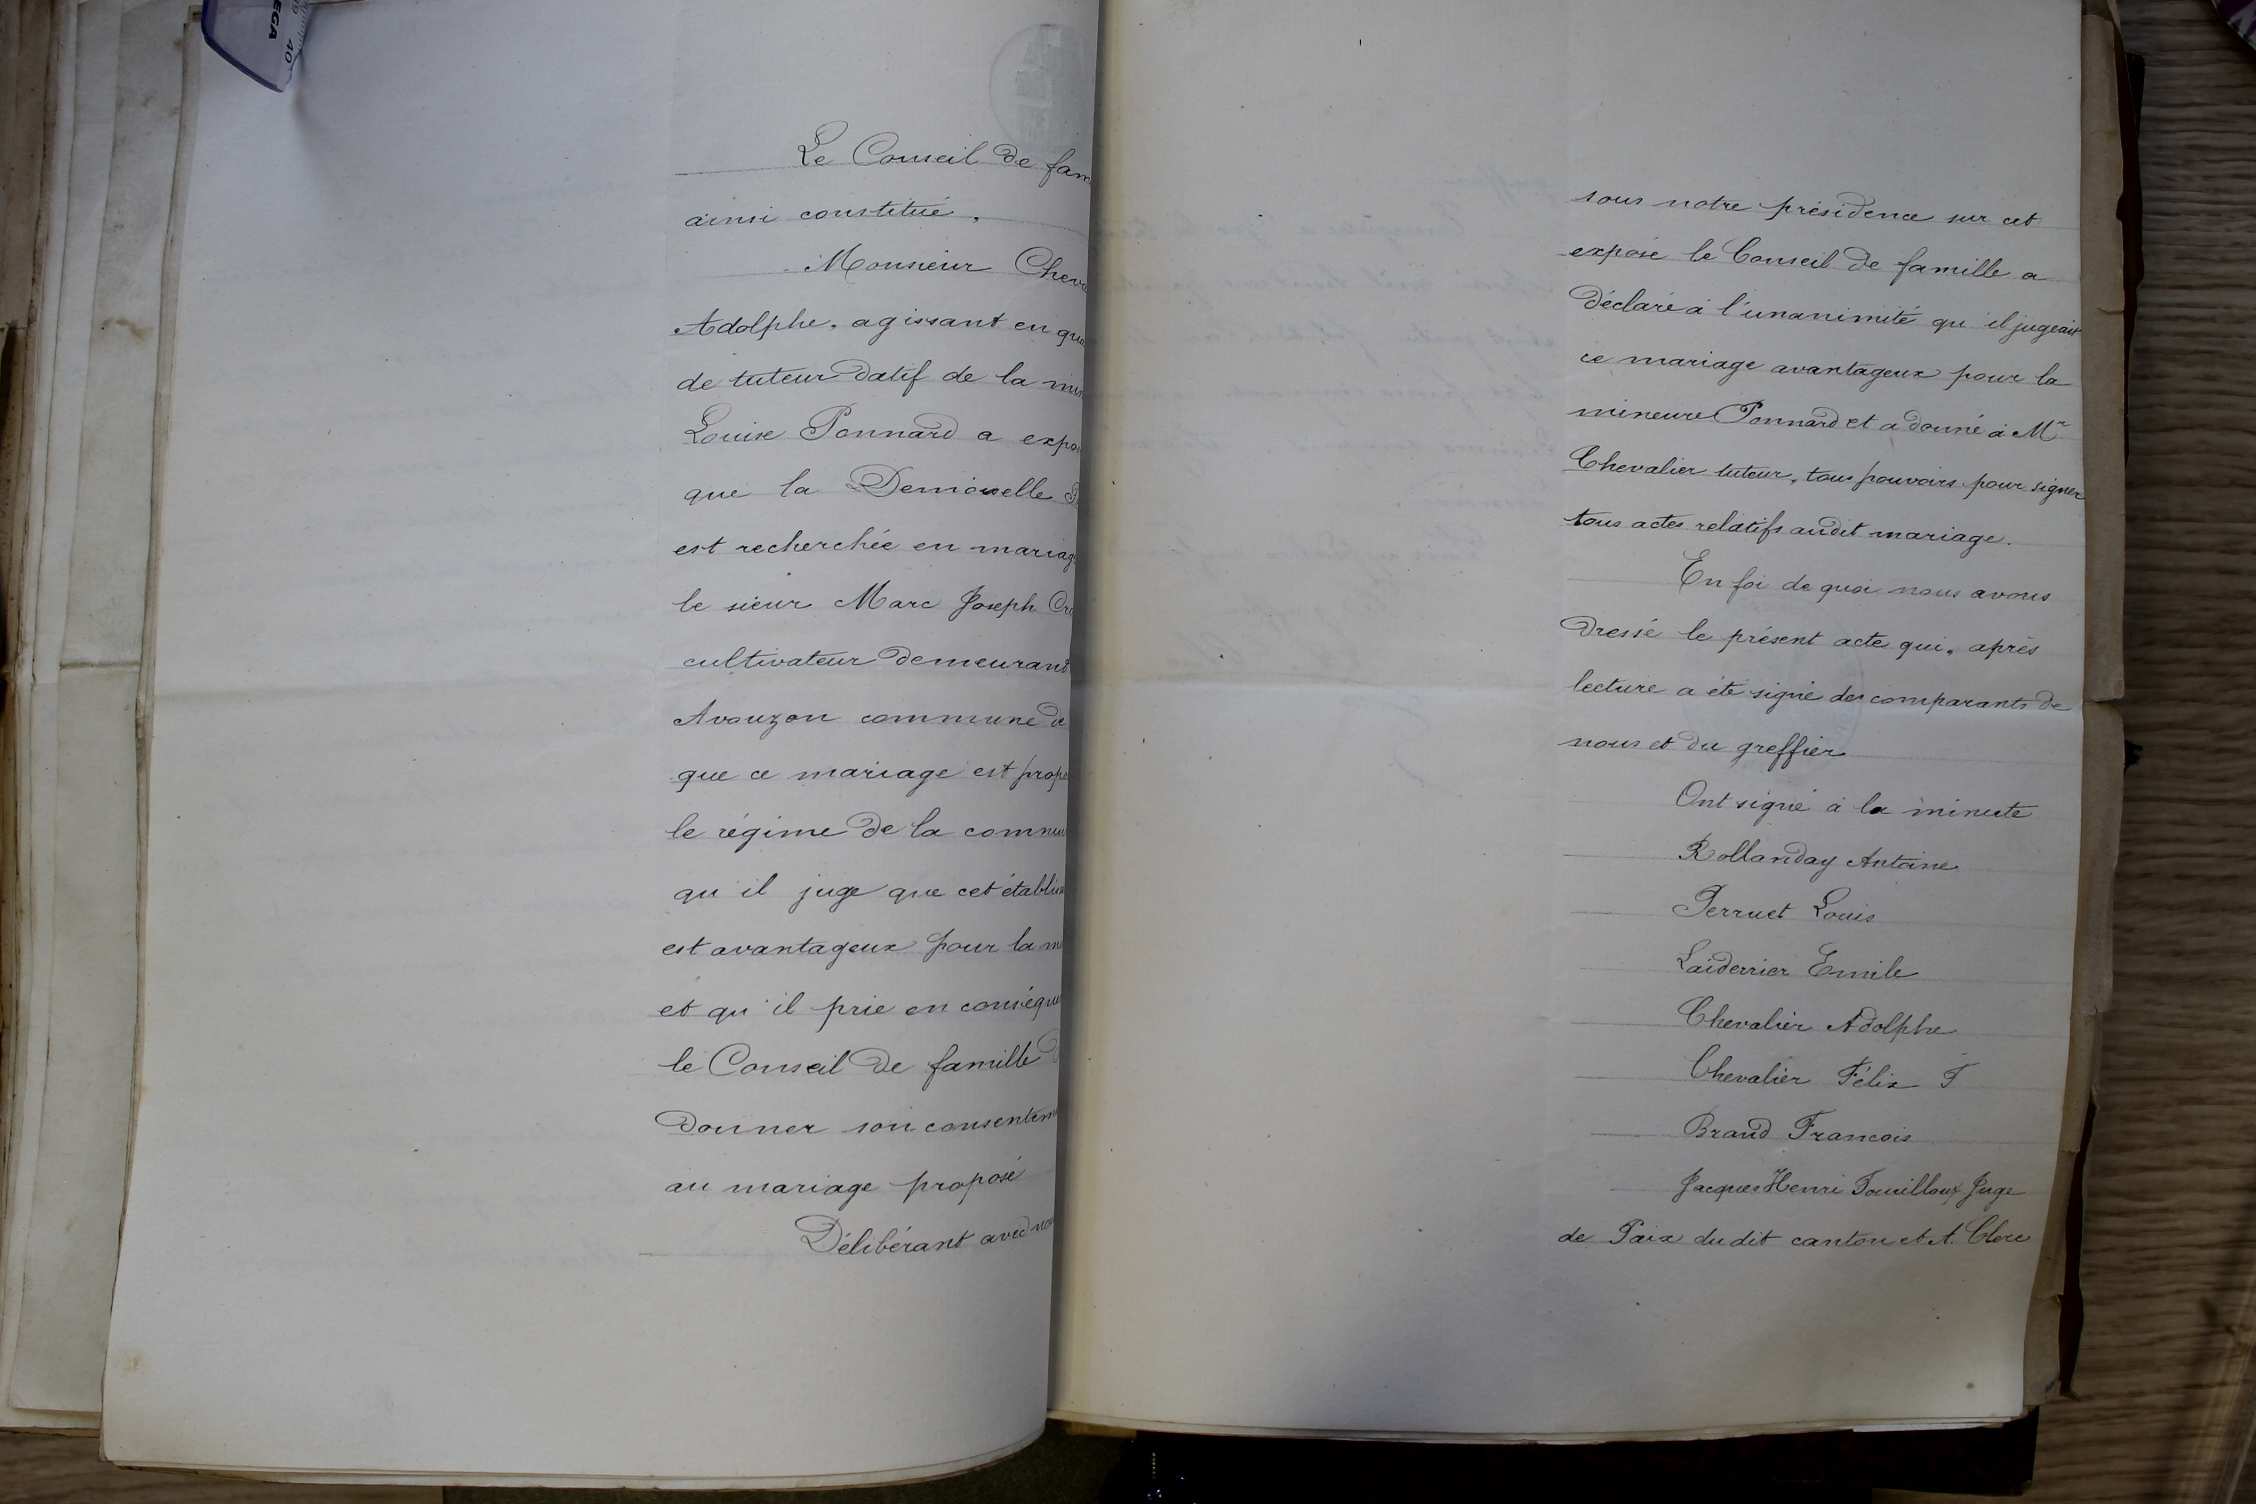 Le Conseil de fam
ainsi constitué,
Monsieur Cheva
Adolphe, agissant en qua
de tuteur datif de la min
Louise Ponnard a expo
que la Demoiselle
est recherchée en mariag
le sieur Marc Joseph
cultivateur demeurant
Avouzon commune de
que ce mariage est prop
le régime de la commu
qu'il juge que cet établis
est avantageux pour la m
et qu'il prie en conséque
le Conseil de famille d
donner son consentem
au mariage proposé
Délibérant avec nou
sous notre présidence sur cet
exposé le Conseil de famille a
déclaré à l'unanimité qu'il jugeait
ce mariage avantageux pour la
mineure Ponnard et a donné à Mr
Chevalier tuteur, tous pouvoirs pour signer
tous actes relatifs audit mariage.
En foi de quoi nous avons
dressé le présent acte qui, après
lecture a été signé des comparants de
nous et du greffier
Ont signé à la minute
Rollanday Antoine
Perruet Louis
Laiderrier Emile
Chevalier Adolphe
Chevalier Félix F
Brand Francois
Jacques Henri Fouilloux Juge
de Paix dudit canton et A. Clerc
EGA
40